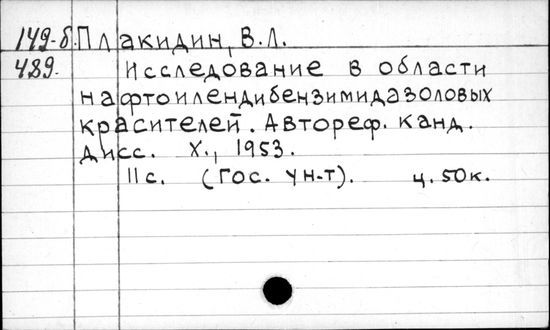 149-б. Плакидин, В.Л.
489. Исследование в области
нафтоилендибензимидазоловых
красителей. Автореф. канд.
дисс. Х., 1953.
11 с. (Гос. ун-т). ц. 50к.